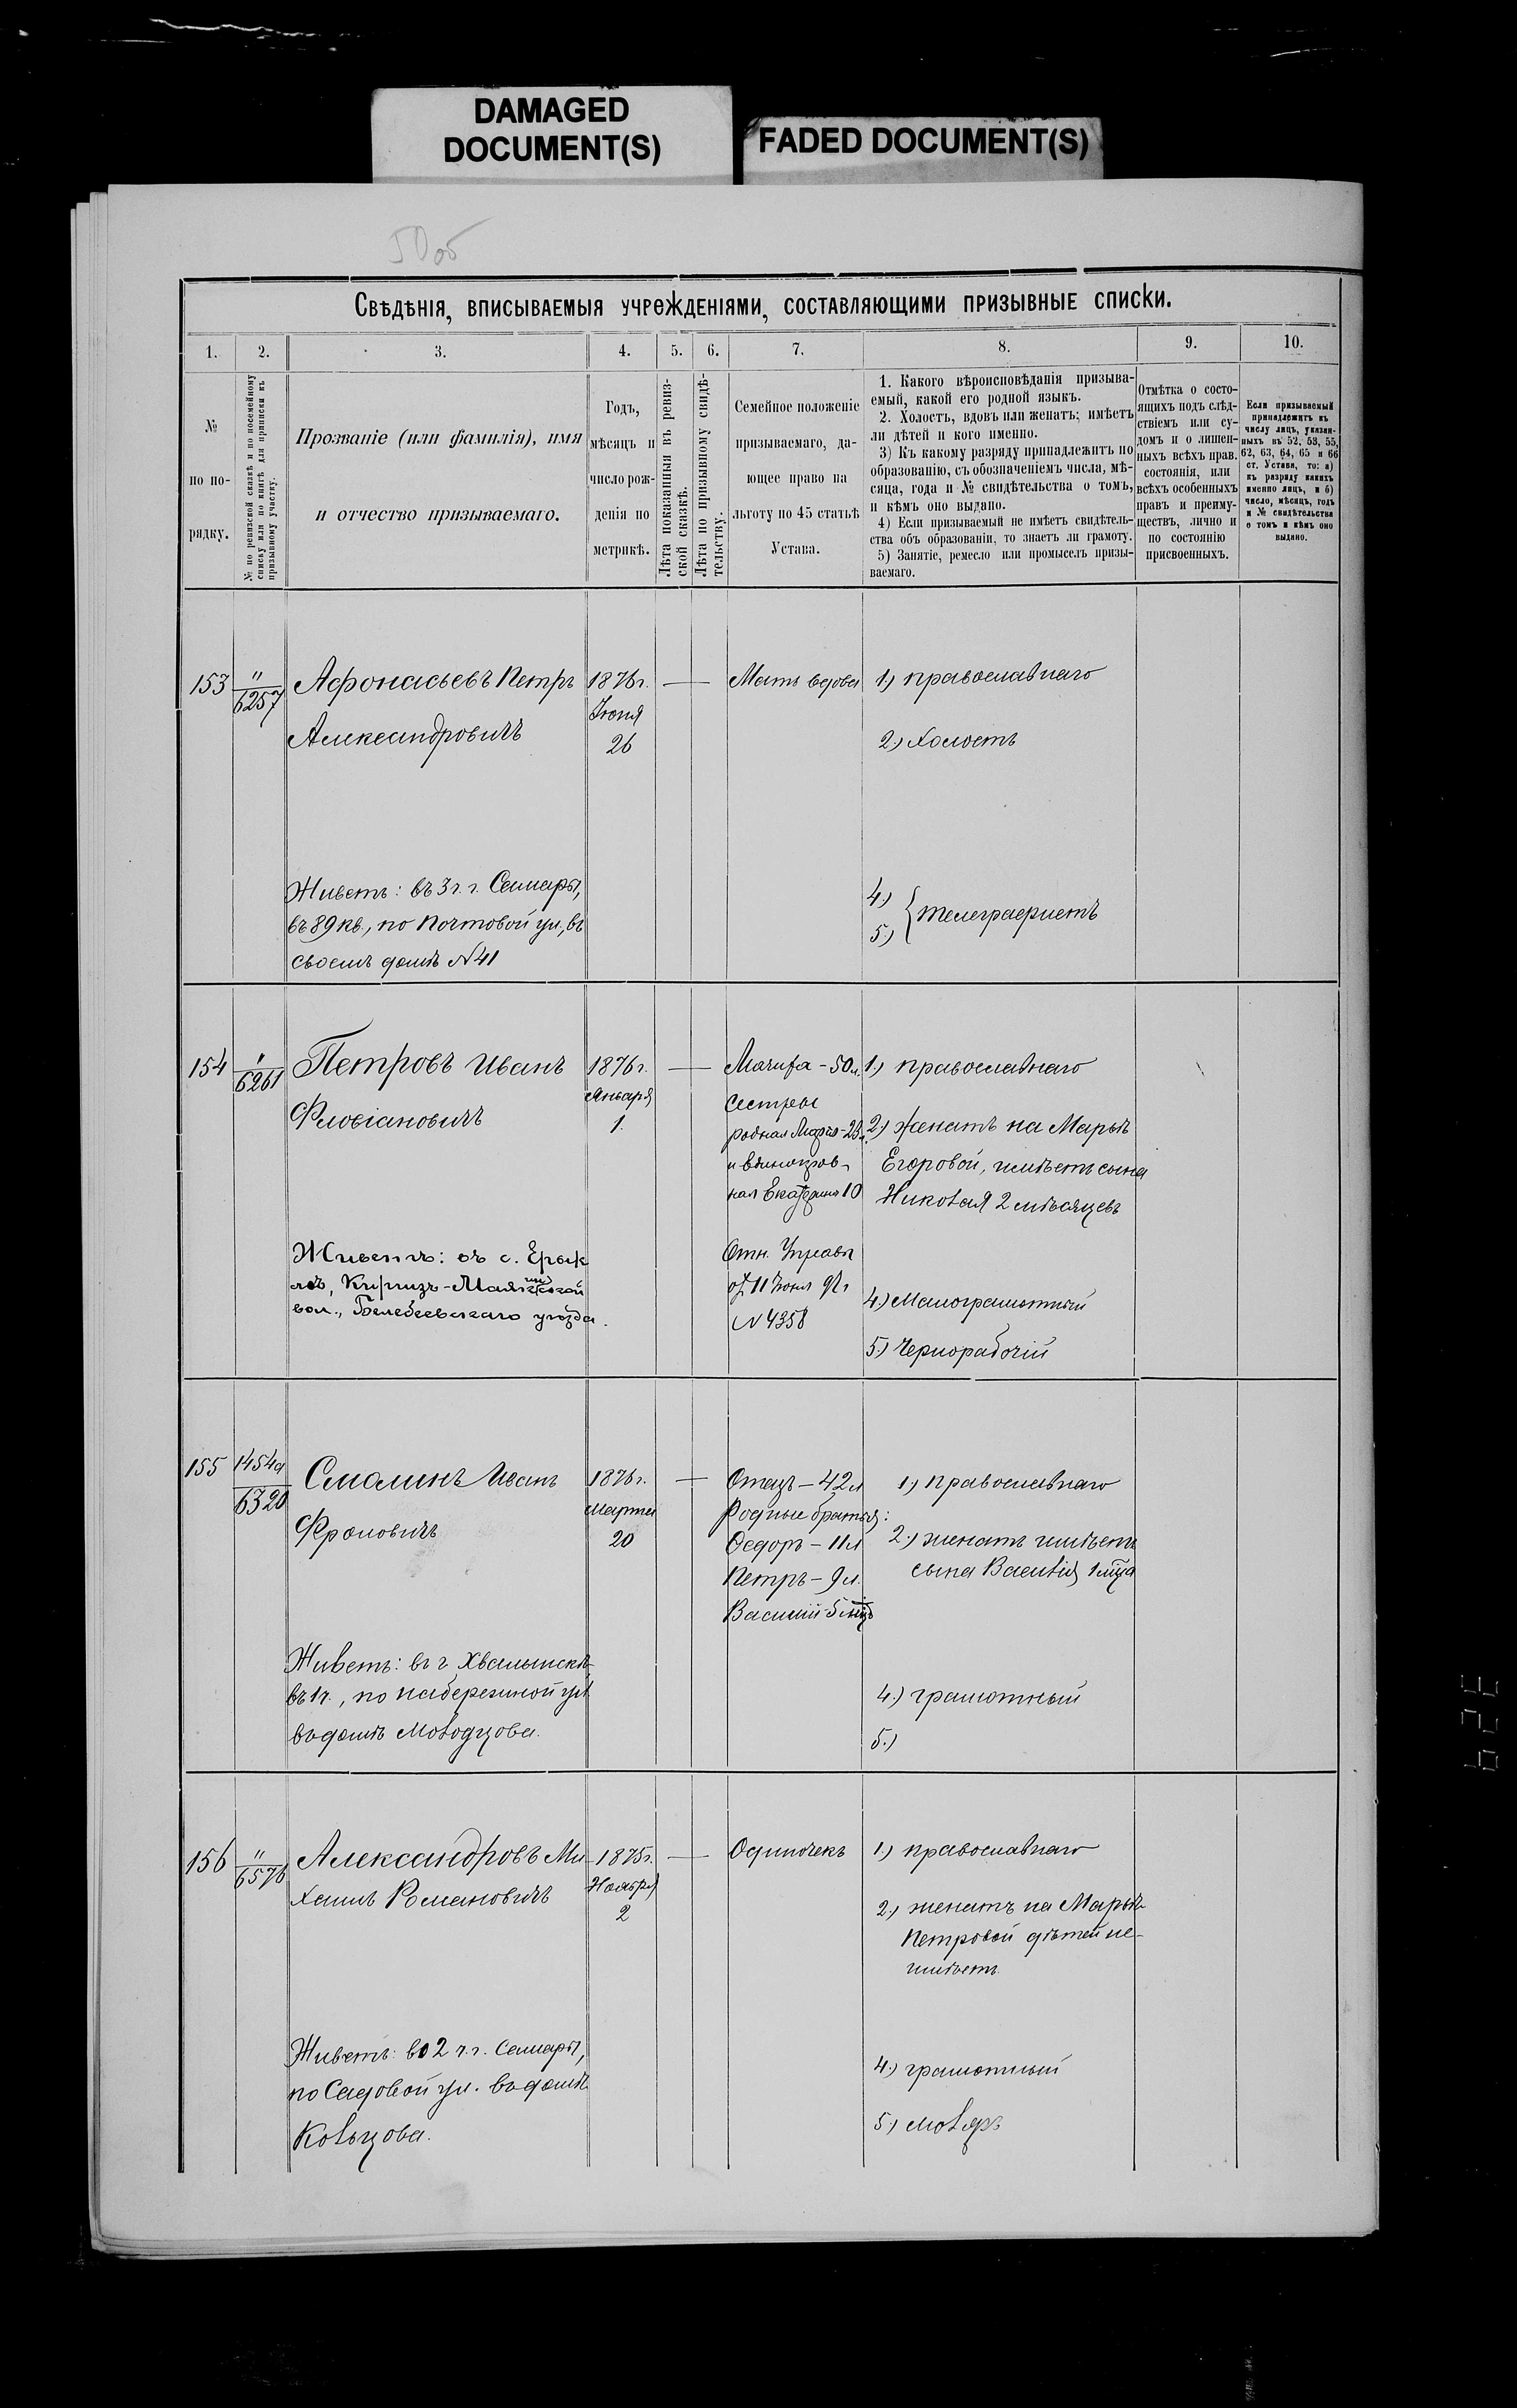 DAMAGED
DOCUMENT(S)
FADED DOCUMENT(S)
50об
Свѣдѣнія, вписываемыя учрежденіями, составляющими призывные списки.
1.
2.
3.
4.
5.
6.
7.
8.
9.
10.
№
по по-
рядку.
№ по ревизской сказкѣ и по посемейному
списку или по книгѣ для приписки къ
призывному участку.
Прозваніе (или фамилія), имя
и отчество призываемаго.
Годъ,
мѣсяцъ и
число рож-
денія по
метрикѣ.
Лѣта показанныя въ ревиз-
ской сказкѣ.
Лѣта по призывному свидѣ-
тельству.
Семейное положеніе
призываемаго, да-
ющее право на
льготу по 45 статьѣ
Устава.
1. Какого вѣроисповѣданія призыва-
емый, какой его родной языкъ.
2. Холостъ, вдовъ или женатъ; имѣетъ
ли дѣтей и кого именно.
3) Къ какому разряду принадлежитъ по
образованію, съ обозначеніемъ числа, мѣ-
сяца, года и № свидѣтельства о томъ,
и кѣмъ оно выдано.
4) Если призываемый не имѣетъ свидѣтель-
ства объ образованіи, то знаетъ ли грамоту.
5) Занятіе, ремесло или промыселъ призы-
ваемаго.
Отмѣтка о состо-
ящихъ подъ слѣд-
ствіемъ или су-
домъ и о лишен-
ныхъ всѣхъ прав.
состоянія, или
всѣхъ особенныхъ
правъ и преиму-
ществъ, лично и
по состоянію
присвоенныхъ.
Если призываемый
принадлежитъ къ
числу лицъ, указан-
ныхъ въ 52, 53, 55,
62, 63, 64, 65 и 66
ст. Устава, то: а)
къ разряду какихъ
именно лицъ, и б)
число, мѣсяцъ, годъ
и № свидѣтельства
о томъ и кѣмъ оно
выдано.
153
"
6257
Афонасьевъ Петръ
Александровичъ
1876 г.
Іюня
26
Мать вдова
1) православнаго
2) Холостъ
Живетъ: въ 3 ч. г. Самары,
въ 89 кв., по Почтовой ул., въ
своемъ домѣ №41
4)
5)
телеграфистъ
154
"
6261
Петровъ Иванъ
Флоріановичъ
1876 г.
Января
1.
Мачиха - 50 л.
сестры
родная
Екатерина 10
1) православнаго
2) женатъ на Марьѣ
Егоровой, имѣетъ сына
Николая 2 мѣсяцевъ
Живетъ: въ с. Ерык
вол., Белебеевскаго уѣзда.
Отн. Управы
от 11 Іюня 97 г
№ 4358
4) Малограмотный
5) Чернорабочій
155
1454а
6320
Смолинъ Иванъ
Фроловичъ
1876 г.
Марта
20
Отецъ - 42 л
Родные братья:
Федоръ - 11 л
Петръ - 9 л.
Василій - 5 мцъ
1) православнаго
2) женатъ имѣетъ
сына Василія 1 мца
Живетъ: въ г. Хвалынскѣ,
въ 1 ч., по набережной ул.
въ домѣ Молодцова.
4) грамотный
5)
156
"
6576
Александровъ Ми-
хаилъ Романовичъ
1875 г.
Ноября
2
Одиночекъ
1) православнаго
2) женатъ на Марьѣ
Петровой дѣтей не-
имѣетъ
Живетъ: во 2 ч. г. Самары,
по Садовой ул. въ домѣ
Кольцова.
4) грамотный
5) моляръ
329